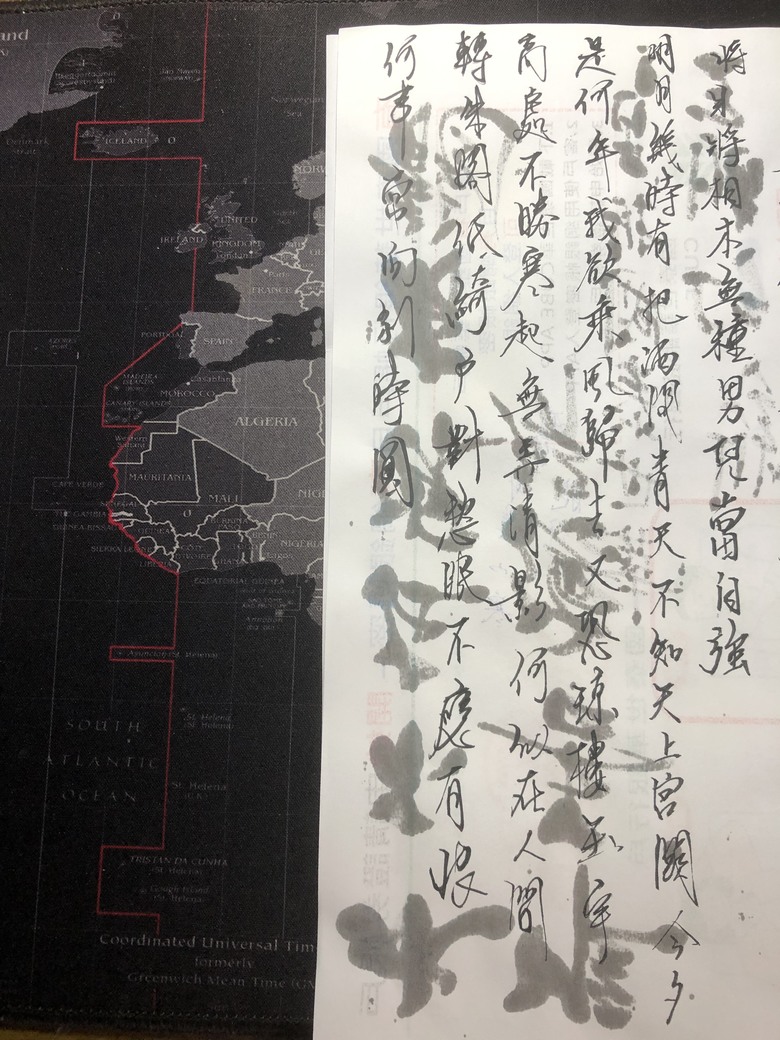 將將相本無種男兒當自強
明月幾時有把酒問青天不知天上宮闕今夕
是何年我欲乘風歸去又恐瓊樓玉宇
高處不勝寒起無弄清影何似在人間
轉朱閣低綺戶對愁眠不應有恨
何事常向別時圓
Jan Mayen
Norwegian
Sea
Denmark
Strait
ICELAND
0
UNITED
KINGDOM
IRELAND
London
Paris
FRANCE
PORTUGAL
SPAIN
AZORES
MADEIRA
ISLANDS
Casablanca
MOROCCO
CANARY ISLANDS
Western
Sahara
ALGERIA
MAURITANIA
MALI
CAPE VERDE
SENEGAL
THE GAMBIA
GUINEA-BISSAU
GUINEA
BURKINA
FASO
BENIN
NIGERIA
SIERRA LEONE
LIBERIA
GHANA
0
EQUATORIAL GUINEA
Ascension (St. Helena)
SOUTH
ATLANTIC
OCEAN
St. Helena
(St. Helena)
St. Helena
(U.K.)
TRISTAN DA CUNHA
(St. Helena)
Gough Island
(St. Helena)
Coordinated Universal Tim
formerly
Greenwich Mean Time (GM